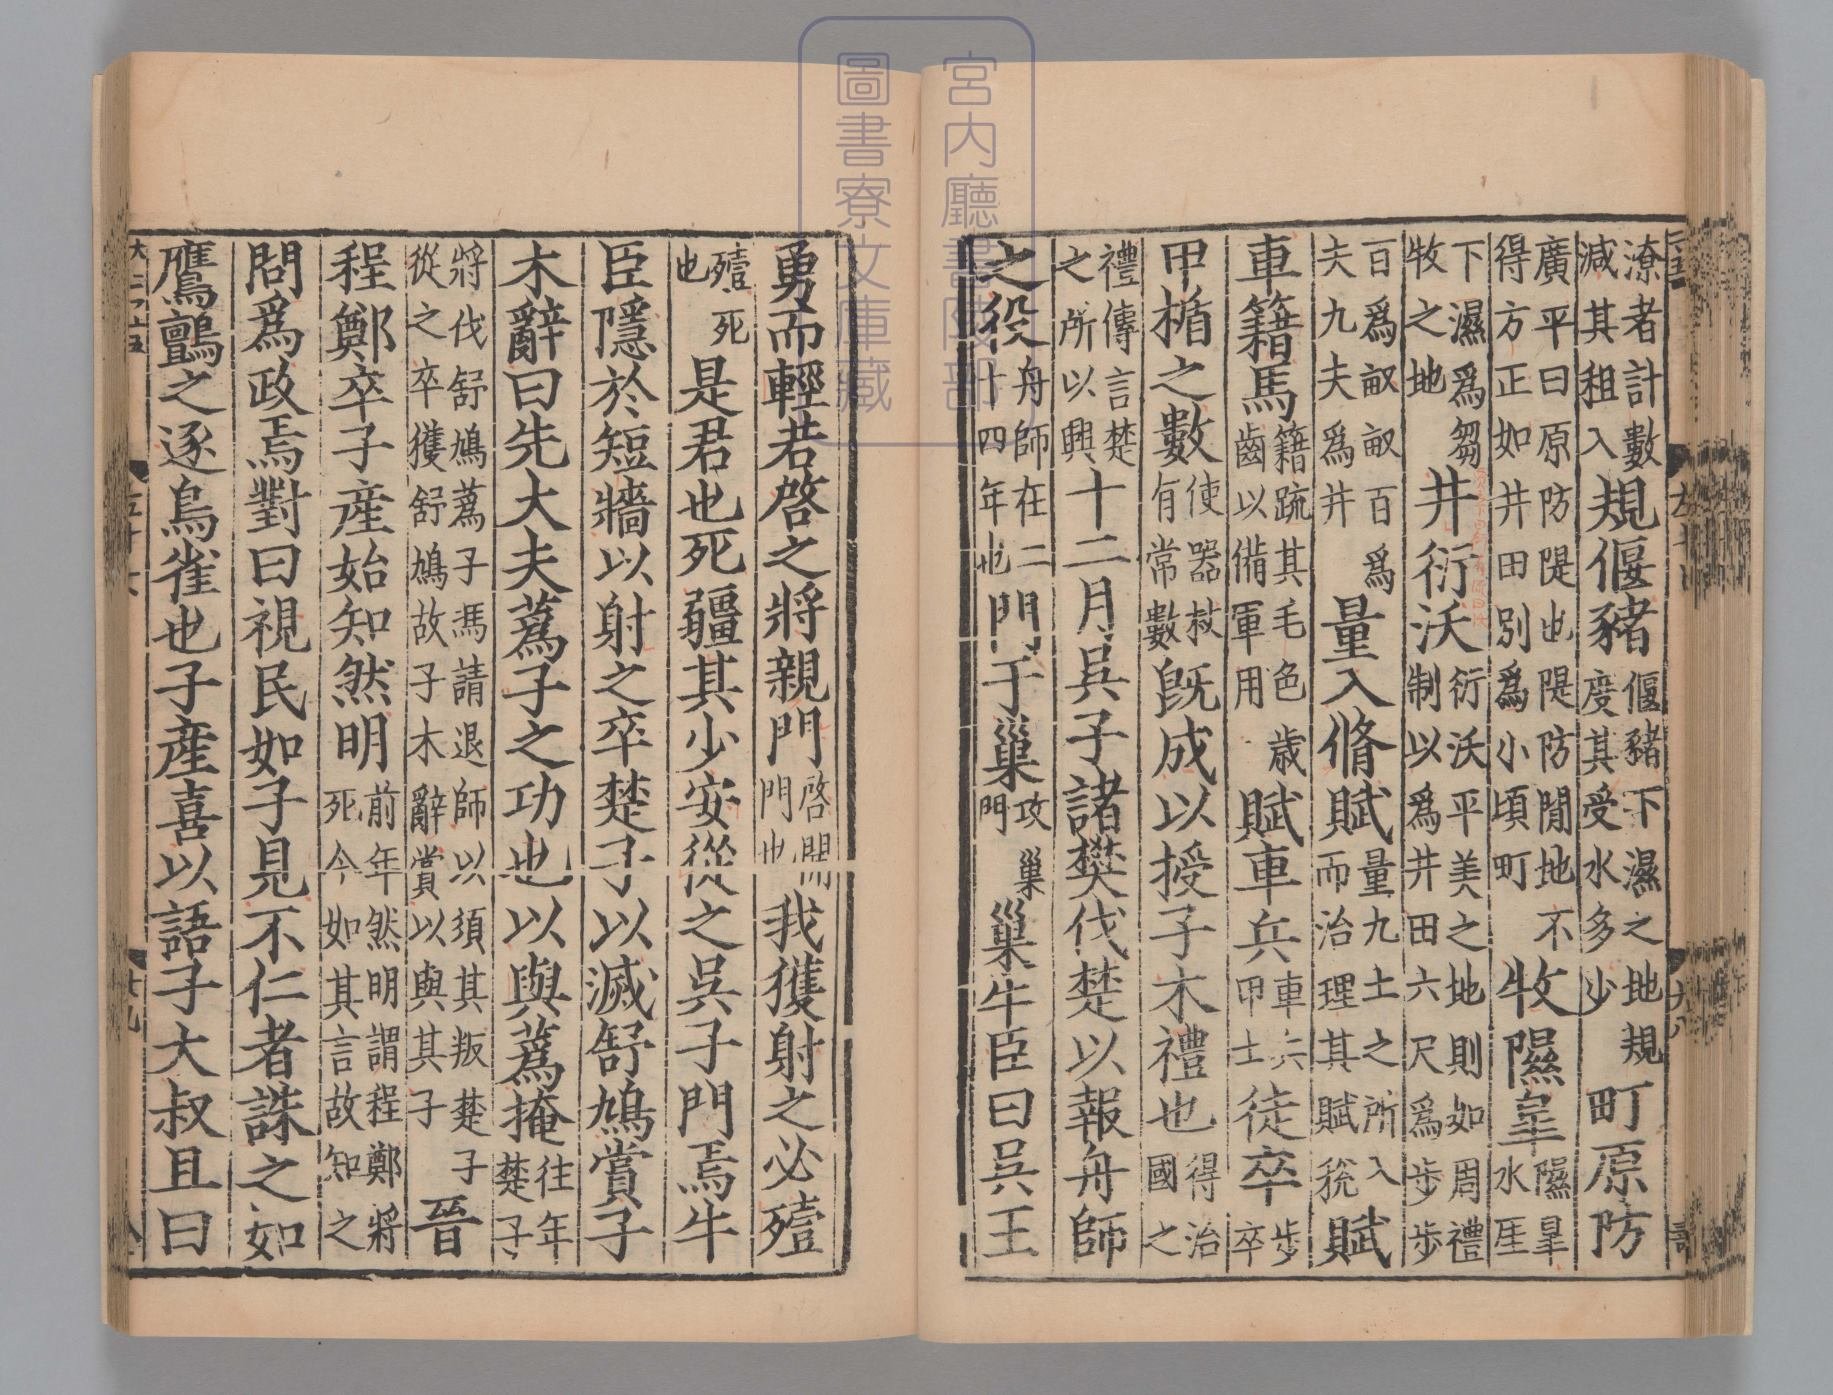 潦者計數減其租入規偃豬偃豬下濕之地規度其受水多少町原防
廣平曰原防隄也隄防閒地不得方正如井田別爲小頃町牧隰皐隰皐水厓
下濕爲芻牧之地井衍沃衍沃平美之地則如周禮制以爲井田六尺爲步步
百爲畝畝百爲夫九夫爲井量入脩賦量九土之所入而治理其賦稅賦
車籍馬籍疏其毛色歲齒以備軍用賦車兵車兵甲士徒卒步卒
甲楯之數使器杖有常數既成以授子木禮也得治國之
禮傳言楚之所以興十二月吳子諸樊伐楚以報舟師
之役舟師在二十四年也門于巢攻巢門巢牛臣曰吳王
勇而輕若啓之將親門啓開門也我獲射之必殪
殪死也是君也死疆其少安從之吳子門焉牛
臣隱於短牆以射之卒楚子以滅舒鳩賞子
木辭曰先大夫蒍子之功也以與蒍掩往年楚子
將伐舒鳩蒍子馮請退師以須其叛楚子從之卒獲舒鳩故子木辭賞以與其子晉
程鄭卒子産始知然明前年然明謂程鄭將死今如其言故知之
問爲政焉對曰視民如子見不仁者誅之如
鷹鸇之逐鳥雀也子産喜以語子大叔且曰
宮内廳書陵部
圖書寮文庫藏